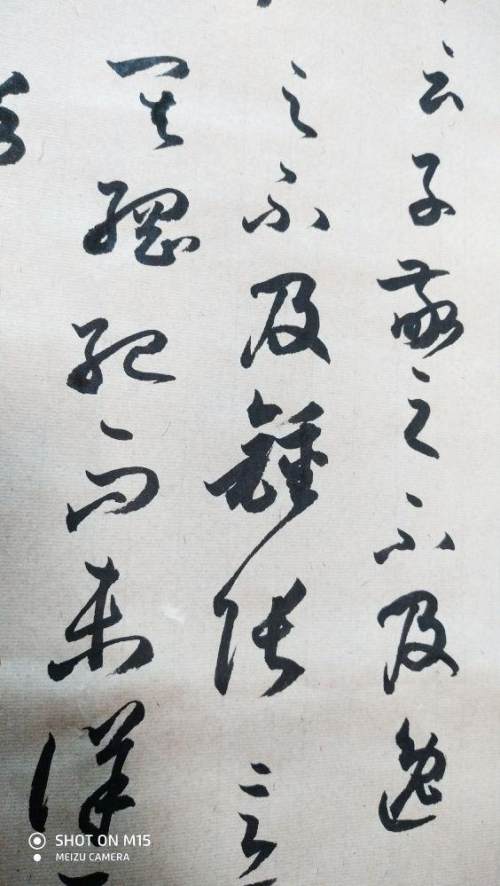 云子敬之不及逸
之不及鍾張意
其綱紀而未詳
SHOT ON M15
MEIZU CAMERA